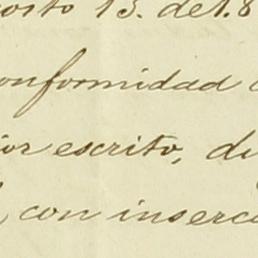 osto 13. de 1.8
onformidad
ior escrito, di
, con inserc